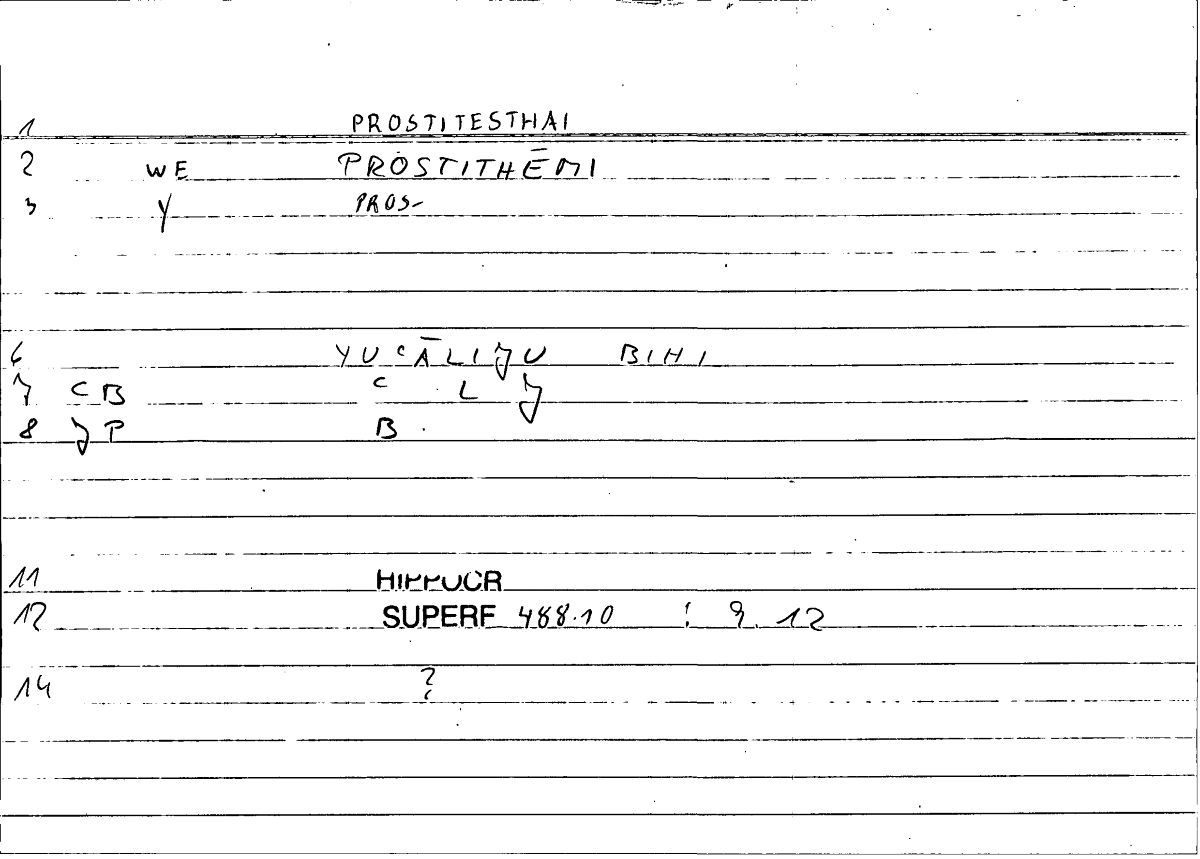 1 PROSTITESTHAI
2 WE PROSTITHĒMI
3 Y PROS-
6 YUCĀLIJU BIHI
7 CB C L J
8 JP B
11 HIPPOCR
12 SUPERF 488.10 ! 9.12
14 ?